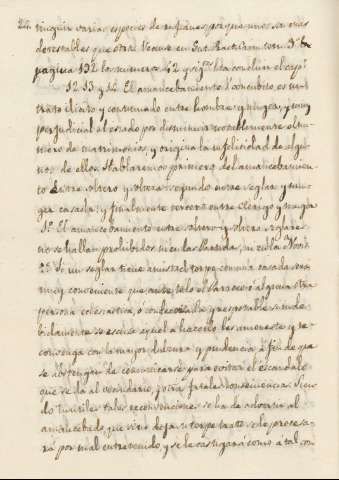 tinguir varias especies de rufianes, porque unos son mas
detestables que otros. Vease en Gut. Pract. Crim. tom. 3º
pagina 132 los numeros 42 y sigtes hta concluir el capº
12. 13 y 14. El amancebamiento ó concubito, es un
trato ilicito y continuado entre hombre y muger, y muy
perjudicial al estado por disminuir notablemente el nu-
mero de matrimonios, y origina la infelicidad de algu-
nos de ellos. Hablaremos primero del amancebamien-
to entre soltero y soltera: segundo entre seglar y mu-
ger casada: y finalmente tercero entre clerigo y muger
1º El amancebamiento entre soltero y soltera seglares
no se hallan prohibidos ni en las Partidas, ni en la Novis.
2º Si un seglar tiene amistad torpe con una casada será
muy conveniente que ante todo el Parroco ó alguna otra
persona eclesiastica, ó condecorada y respetable
se escuse aquel á hacerlo, les amoneste y re-
convenga con la mayor dulzura y prudencia á fin de que
se abstengan de comunicarse para evitar el escandalo
que se da al vecindario, y otras fatales consecuencias. Sien-
do inutiles tales reconvenciones se ha de advertir al
amancebado, que si no deja su torpe trato se le procesa-
rá por mal entretenido, y se le castigará como á tal con